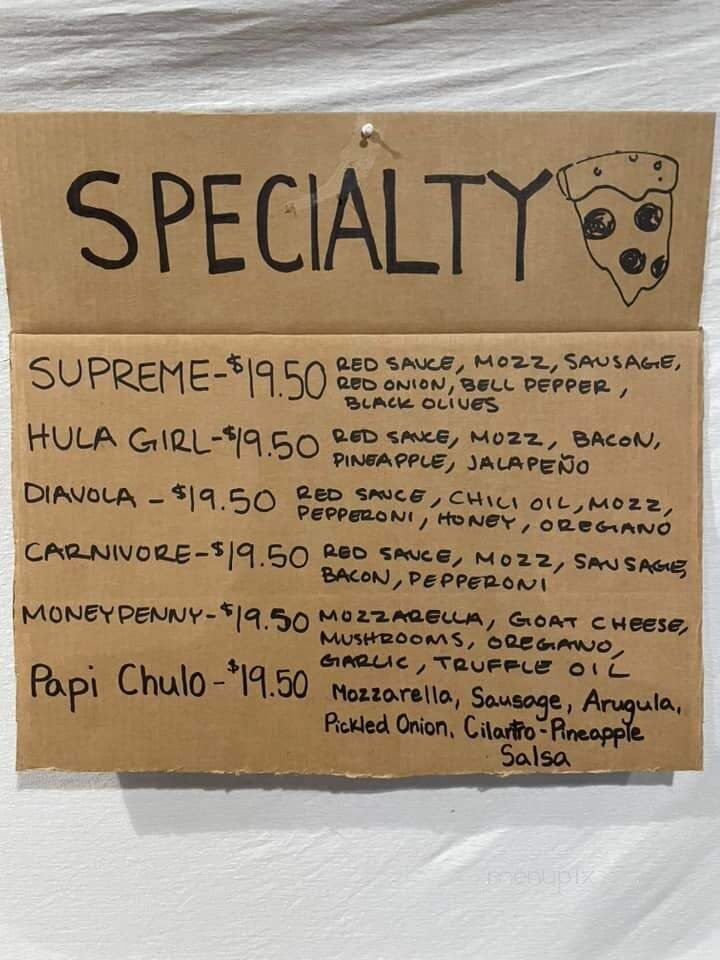 SPECIALTY
SUPREME-$19.50 RED SAUCE, MOZZ, SAUSAGE,
RED ONION, BELL PEPPER,
BLACK OLIVES
HULA GIRL-$19.50 RED SAUCE, MOZZ, BACON,
PINEAPPLE, JALAPEÑO
DIAVOLA - $19.50 RED SAUCE, CHILI OIL, MOZZ,
PEPPERONI, HONEY, OREGANO
CARNIVORE-$19.50 RED SAUCE, MOZZ, SAUSAGE,
BACON, PEPPERONI
MONEYPENNY-$19.50 MOZZARELLA, GOAT CHEESE,
MUSHROOMS, OREGANO,
GARLIC, TRUFFLE OIL
Papi Chulo-$19.50 Mozzarella, Sausage, Arugula,
Pickled Onion, Cilantro-Pineapple
Salsa
menupix